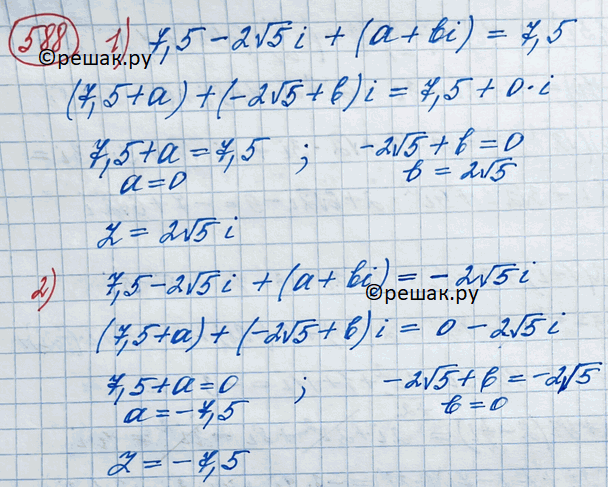 588 1) 7,5 - 2√5 i + (a + bi) = 7,5
©решак.ру
(7,5 + a) + (-2√5 + b) i = 7,5 + 0 · i
7,5 + a = 7,5 ; -2√5 + b = 0
a = 0 b = 2√5
z = 2√5 i
2) 7,5 - 2√5 i + (a + bi) = -2√5 i
©решак.ру
(7,5 + a) + (-2√5 + b) i = 0 - 2√5 i
7,5 + a = 0 ; -2√5 + b = -2√5
a = -7,5 b = 0
z = -7,5